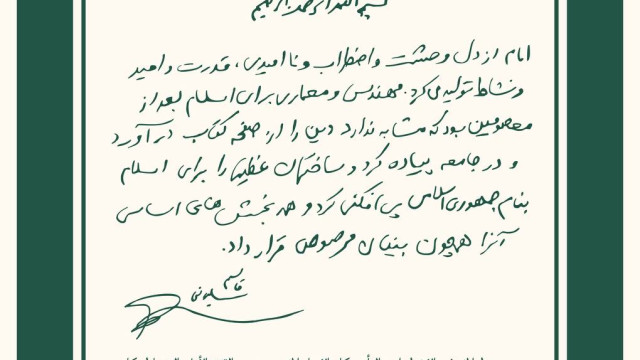 بسم الله الرحمن الرحیم
امام از دل وحشت و اضطراب و ناامیدی، قدرت و امید
و نشاط تولید می‌کرد. مهندس و معماری برای اسلام بعد از
معصومین بود که مشابه ندارد دین را از صفحه کتاب درآورد
و در جامعه پیاده کرد و ساختمان عظیم را برای اسلام
بنام جمهوری اسلامی پی افکنی کرد و همه بخش‌های اساسی
آنرا همچون بنیان مرصوص قرار داد.
قاسم سلیمانی